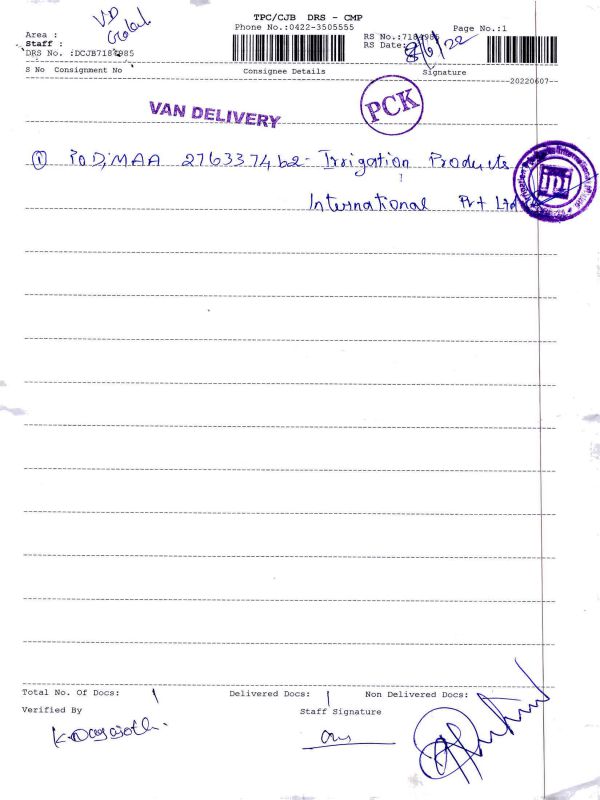 TPC/CJB DRS - CMP
Phone No.:0422-3505555
Page No.:1
VD
Area :
RS No.:7184985
Staff :
RS Date:
8/6/22
DRS No. :DCJB7184985
S No Consignment No
Consignee Details
Signature
--20220607--
VAN DELIVERY
PCK
① POD,MAA 276337462- Irrigation Products
International Pvt Ltd
ipi
Total No. Of Docs: 1
Delivered Docs: 1
Non Delivered Docs:
Verified By
Staff Signature